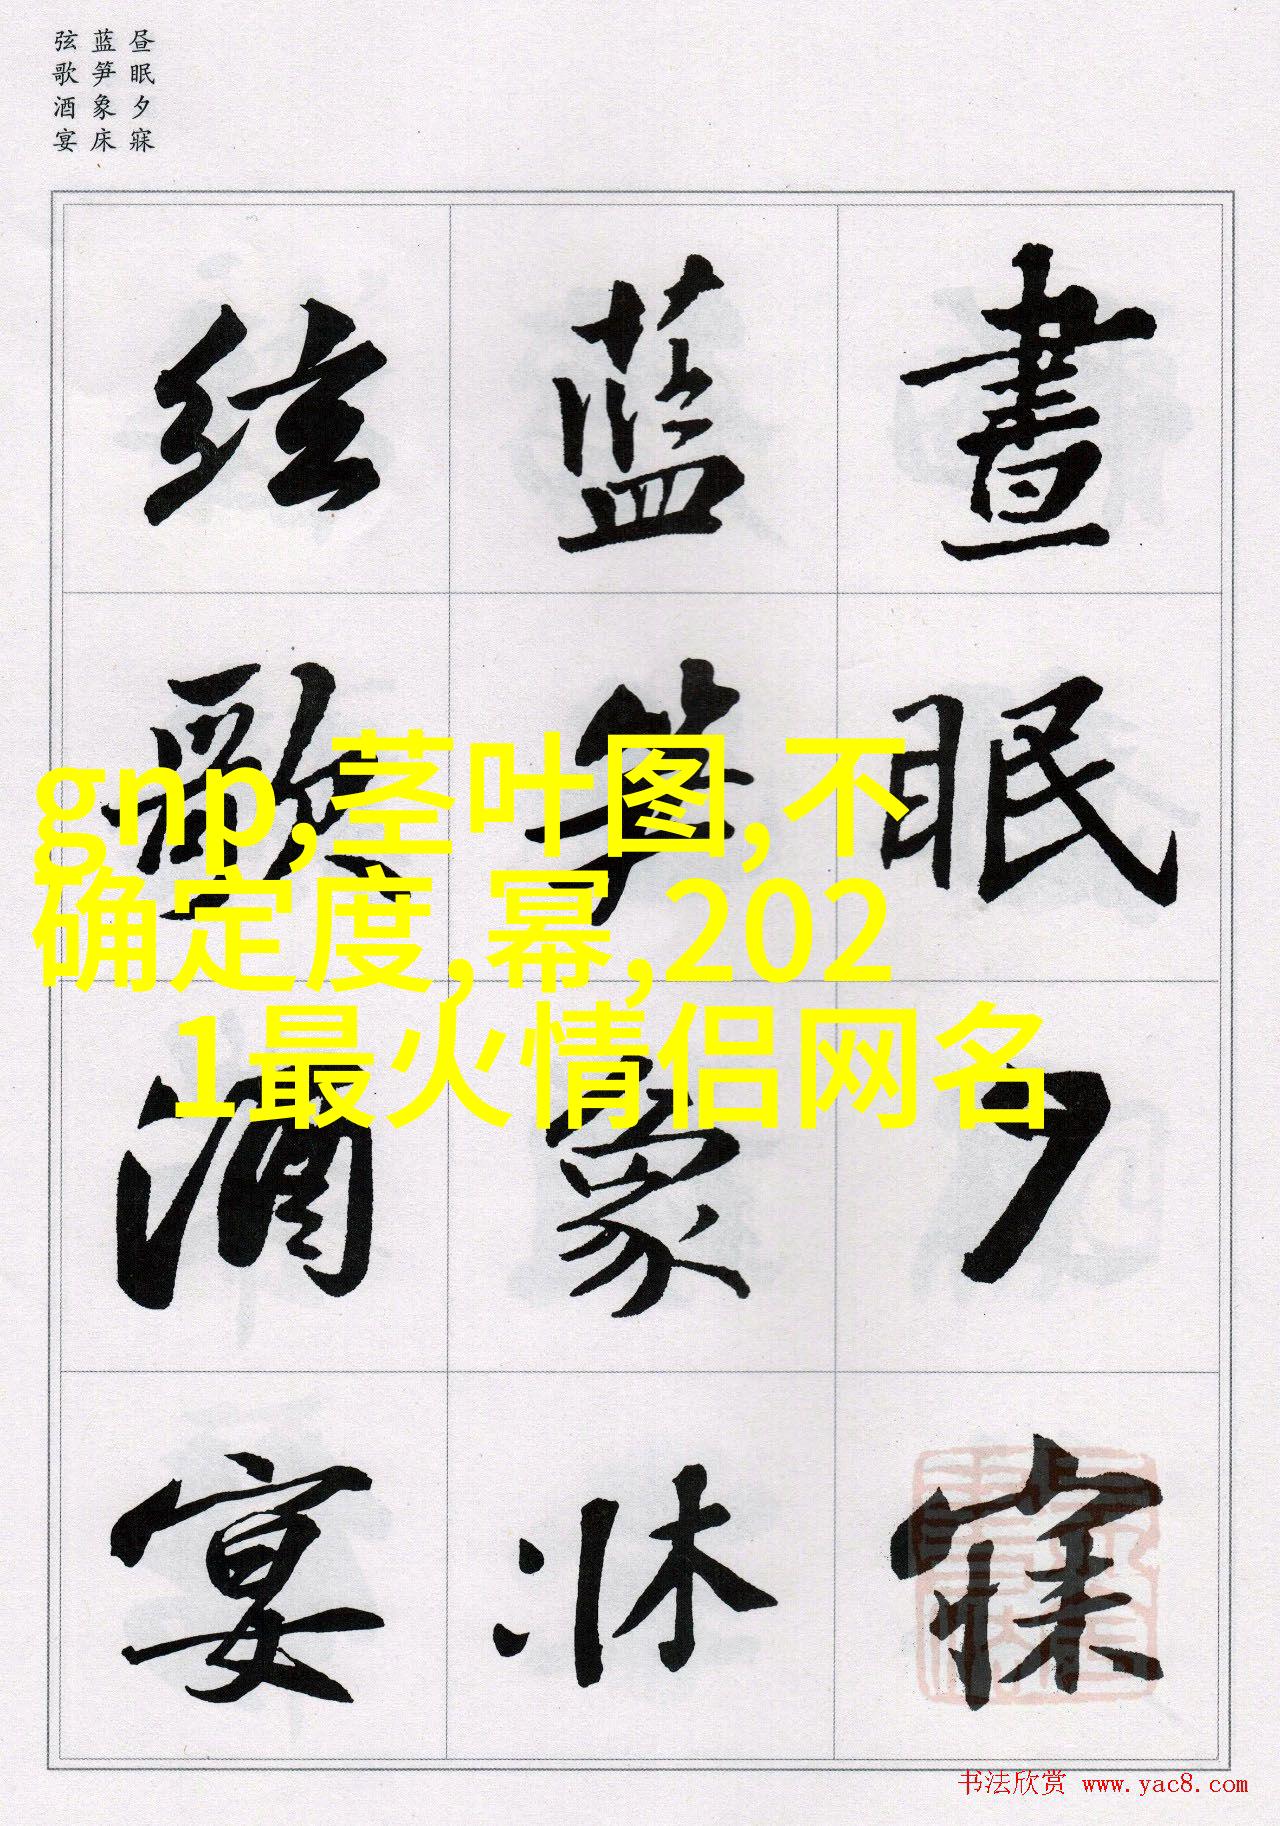 昼眠夕寐
蓝笋象床
弦歌酒宴
晝眠夕寐
藍笋象床
絃歌酒宴
gnp,茎叶图,不
确定度,幂,202
1最火情侣网名
书法欣赏 www.yac8.com